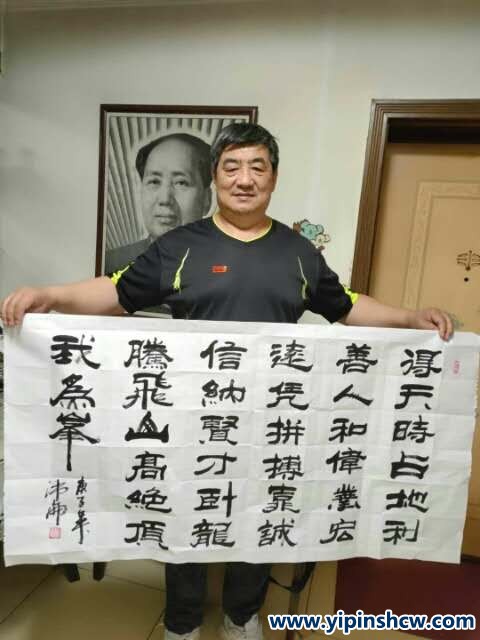 得天時占地利
善人和偉業宏
遠凭拼搏靠誠
信納賢才卧龍
騰飛山高絕頂
我為峯
庚子年
www.yipinshcw.com